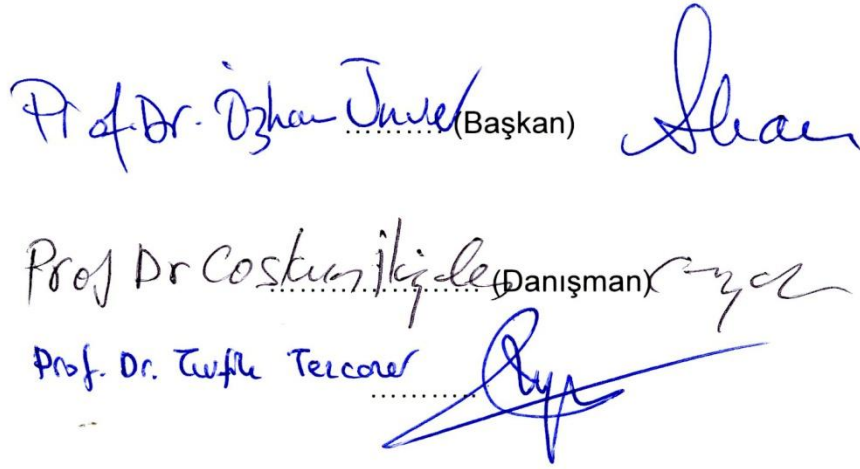 Prof. Dr. Özhan Ünver (Başkan)
Prof Dr Coşkun İkizler (Danışman)
Prof. Dr. Tevfik